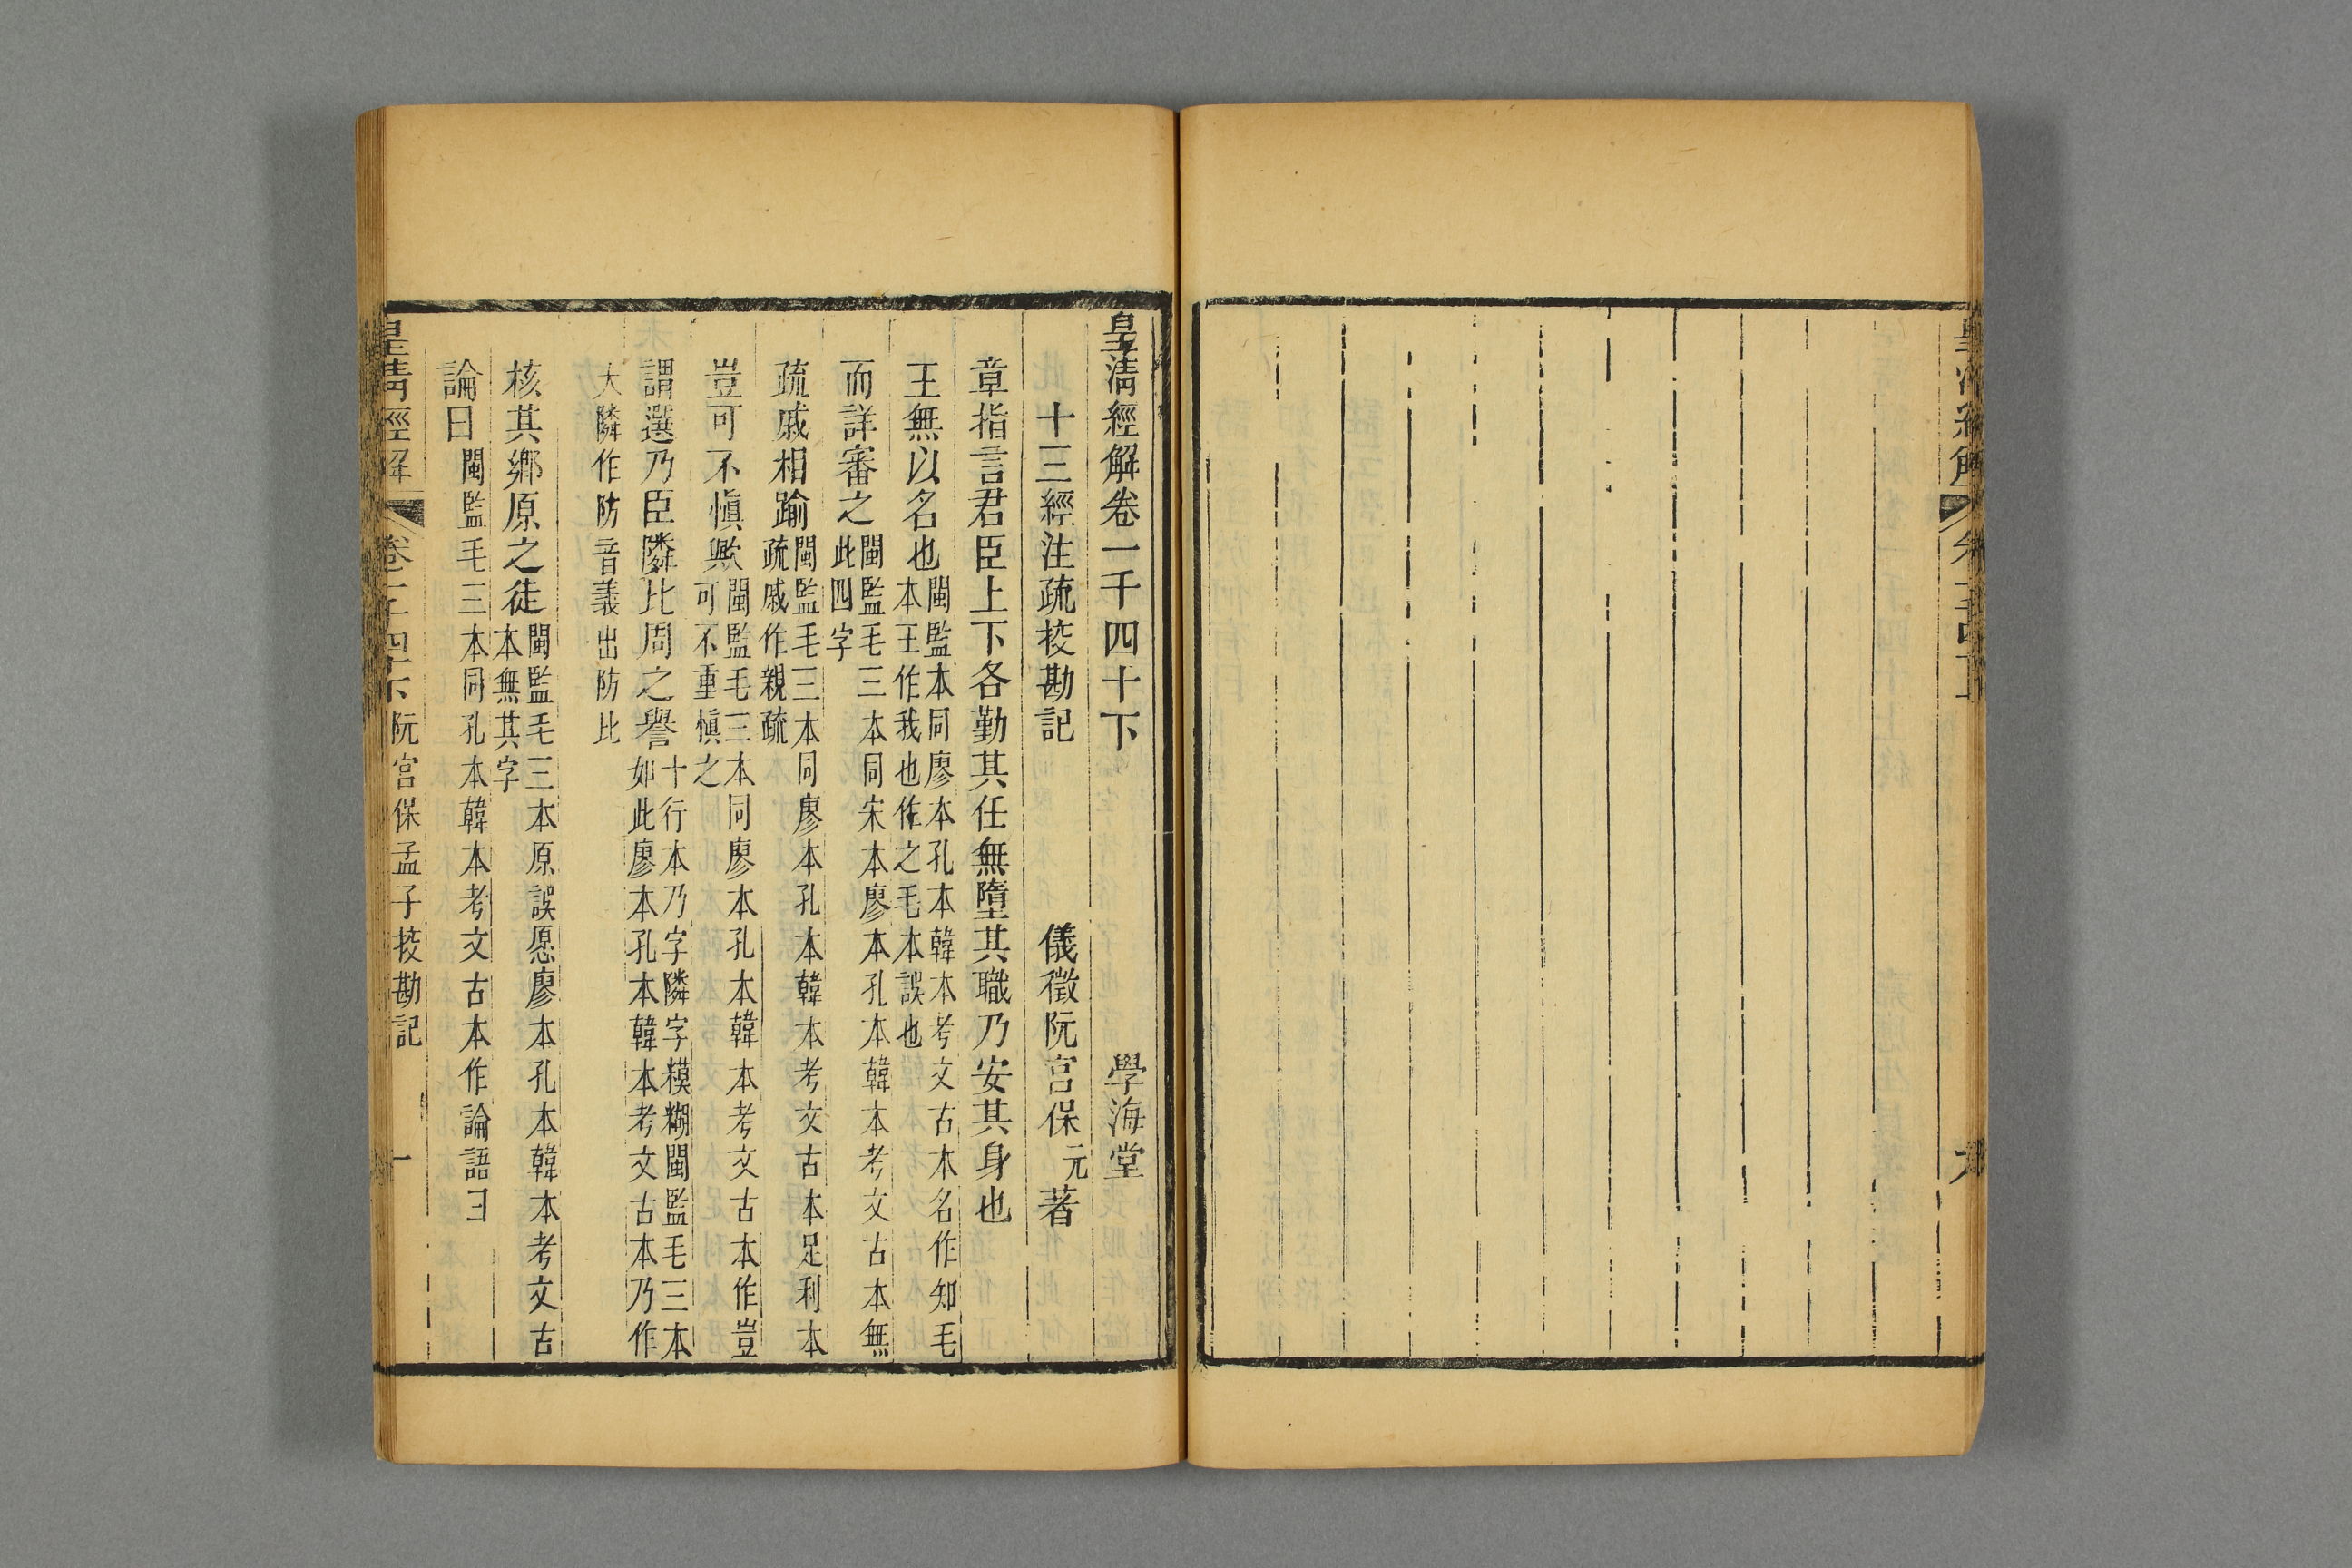 皇清經解卷一千四十下 學海堂
十三經注疏挍勘記 儀徵阮宮保元著
章指言君臣上下各勤其任無墮其職乃安其身也
王無以名也閩監本同廖本孔本韓本考文古本名作知毛
本王作我也作之毛本誤也
而詳審之閩監毛三本同宋本廖本孔本韓本考文古本無
此四字
疏戚相踰閩監毛三本同廖本孔本韓本考文古本足利本
疏戚作親疏
豈可不慎歟閩監毛三本同廖本孔本韓本考文古本作豈
可不重慎之
謂選乃臣隣比周之譽十行本乃字隣字糢糊閩監毛三本
如此廖本孔本韓本考文古本乃作
大隣作防音義出防比
核其鄉原之徒閩監毛三本原誤愿廖本孔本韓本考文古
本無其字
論曰閩監毛三本同孔本韓本考文古本作論語曰
皇清經解 卷一千四十下 阮宮保孟子挍勘記 一